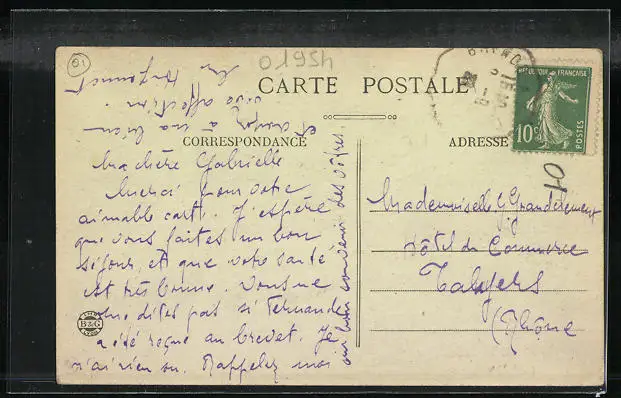 01
01954
CARTE POSTALE
CORRESPONDANCE
ADRESSE
RÉPUBLIQUE FRANÇAISE
10c
POSTES
01
Ma chère Gabrielle
Merci pour votre
aimable carte. J'espère
que vous faites un bon
séjour, et que votre santé
est très bonne. Vous ne
me dites pas si Fernande
a été reçue au brevet. Je
n'ai rien su. Rappelez moi
au bon souvenir des vôtres.
et croyez à ma bien
vive affection.
Mademoiselle G Grandclément
Hôtel du Commerce
(Rhône
B&G
LYON